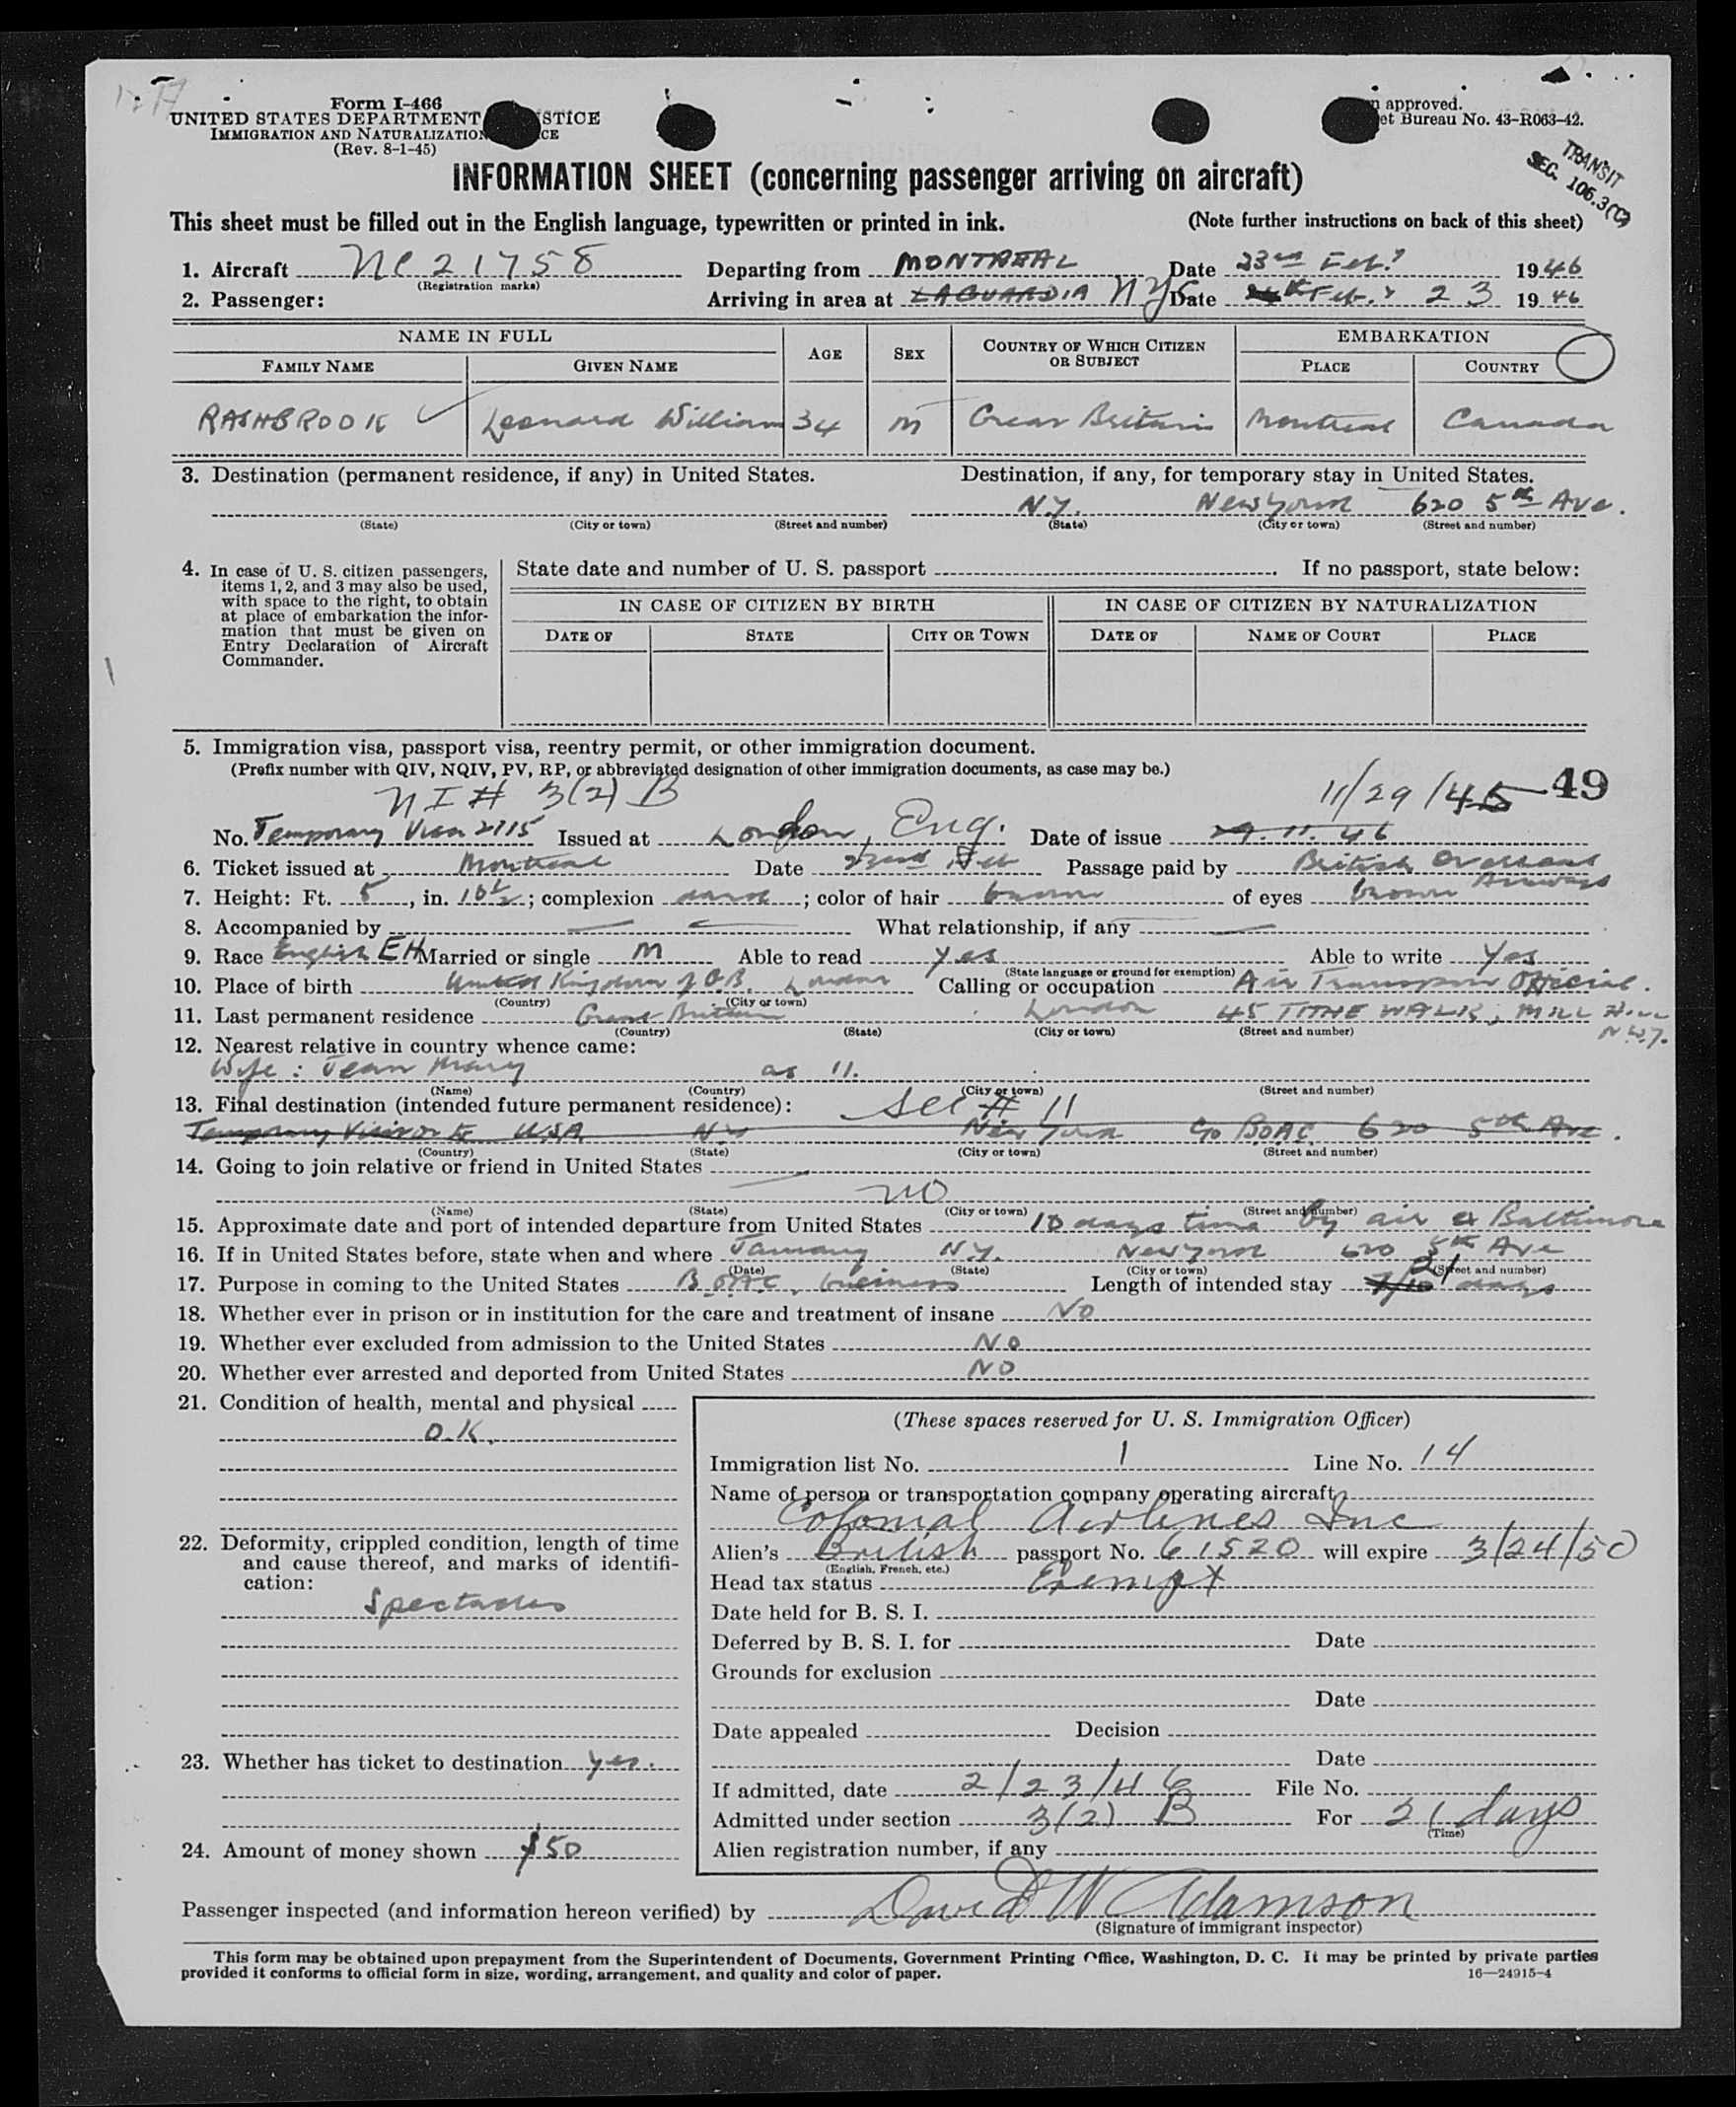 Form I-466
UNITED STATES DEPARTMENT STICE
IMMIGRATION AND NATURALIZATION CE
(Rev. 8-1-45)
approved.
et Bureau No. 43-R063-42.
TRANSIT
SEC. 106.3(C)
INFORMATION SHEET (concerning passenger arriving on aircraft)
This sheet must be filled out in the English language, typewritten or printed in ink. (Note further instructions on back of this sheet)
1. Aircraft NC 21758 Departing from MONTREAL Date 23rd Feb.y 1946
(Registration marks)
2. Passenger: Arriving in area at LAGUARDIA NYC Date Feb.y 23 1946
NAME IN FULL AGE SEX COUNTRY OF WHICH CITIZEN OR SUBJECT EMBARKATION
FAMILY NAME GIVEN NAME PLACE COUNTRY
RASHBROOK Leonard William 34 M Great Britain Montreal Canada
3. Destination (permanent residence, if any) in United States. Destination, if any, for temporary stay in United States.
N.Y. New York 620 5th Ave.
(State) (City or town) (Street and number) (State) (City or town) (Street and number)
4. In case of U. S. citizen passengers, items 1, 2, and 3 may also be used, with space to the right, to obtain at place of embarkation the information that must be given on Entry Declaration of Aircraft Commander.
State date and number of U. S. passport . If no passport, state below:
IN CASE OF CITIZEN BY BIRTH IN CASE OF CITIZEN BY NATURALIZATION
DATE OF STATE CITY OR TOWN DATE OF NAME OF COURT PLACE
5. Immigration visa, passport visa, reentry permit, or other immigration document.
(Prefix number with QIV, NQIV, PV, RP, or abbreviated designation of other immigration documents, as case may be.)
NI # 3(2) B 11/29/45 49
No. Temporary Visa 2115 Issued at London, Eng. Date of issue 29.11.46
6. Ticket issued at Montreal Date 22nd Feb Passage paid by British Overseas Airways
7. Height: Ft. 5, in. 10½; complexion dark; color of hair brown of eyes brown
8. Accompanied by — What relationship, if any —
9. Race English EH Married or single M Able to read yes Able to write Yes
(State language or ground for exemption)
10. Place of birth United Kingdom of G.B. London Calling or occupation Air Transport Official.
(Country) (City or town)
11. Last permanent residence Great Britain London 45 TITHE WALK, MILL Hill N.W.7.
(Country) (State) (City or town) (Street and number)
12. Nearest relative in country whence came:
Wife: Jean Mary as 11.
(Name) (Country) (City or town) (Street and number)
13. Final destination (intended future permanent residence): See # 11
Temporary Visitor to U.S.A. N.Y. New York c/o BOAC 620 5th Ave.
(Country) (State) (City or town) (Street and number)
14. Going to join relative or friend in United States —
NO
(Name) (State) (City or town) (Street and number)
15. Approximate date and port of intended departure from United States 10 days time by air ex Baltimore
16. If in United States before, state when and where January N.Y. New York 620 5th Ave
(Date) (State) (City or town) (Street and number)
17. Purpose in coming to the United States B.O.A.C. business Length of intended stay 7/10 21 days
18. Whether ever in prison or in institution for the care and treatment of insane No
19. Whether ever excluded from admission to the United States No
20. Whether ever arrested and deported from United States NO
21. Condition of health, mental and physical
O.K.
22. Deformity, crippled condition, length of time and cause thereof, and marks of identification:
Spectacles
23. Whether has ticket to destination yes.
24. Amount of money shown $50
(These spaces reserved for U. S. Immigration Officer)
Immigration list No. 1 Line No. 14
Name of person or transportation company operating aircraft
Colonial Airlines Inc
Alien's British passport No. 61520 will expire 3/24/50
(English, French, etc.)
Head tax status Exempt
Date held for B. S. I.
Deferred by B. S. I. for Date
Grounds for exclusion
Date
Date appealed Decision
Date
If admitted, date 2/23/46 File No.
Admitted under section 3(2) B For 21 days
(Time)
Alien registration number, if any
Passenger inspected (and information hereon verified) by David W Adamson
(Signature of immigrant inspector)
This form may be obtained upon prepayment from the Superintendent of Documents, Government Printing Office, Washington, D. C. It may be printed by private parties
provided it conforms to official form in size, wording, arrangement, and quality and color of paper. 16—24915-4